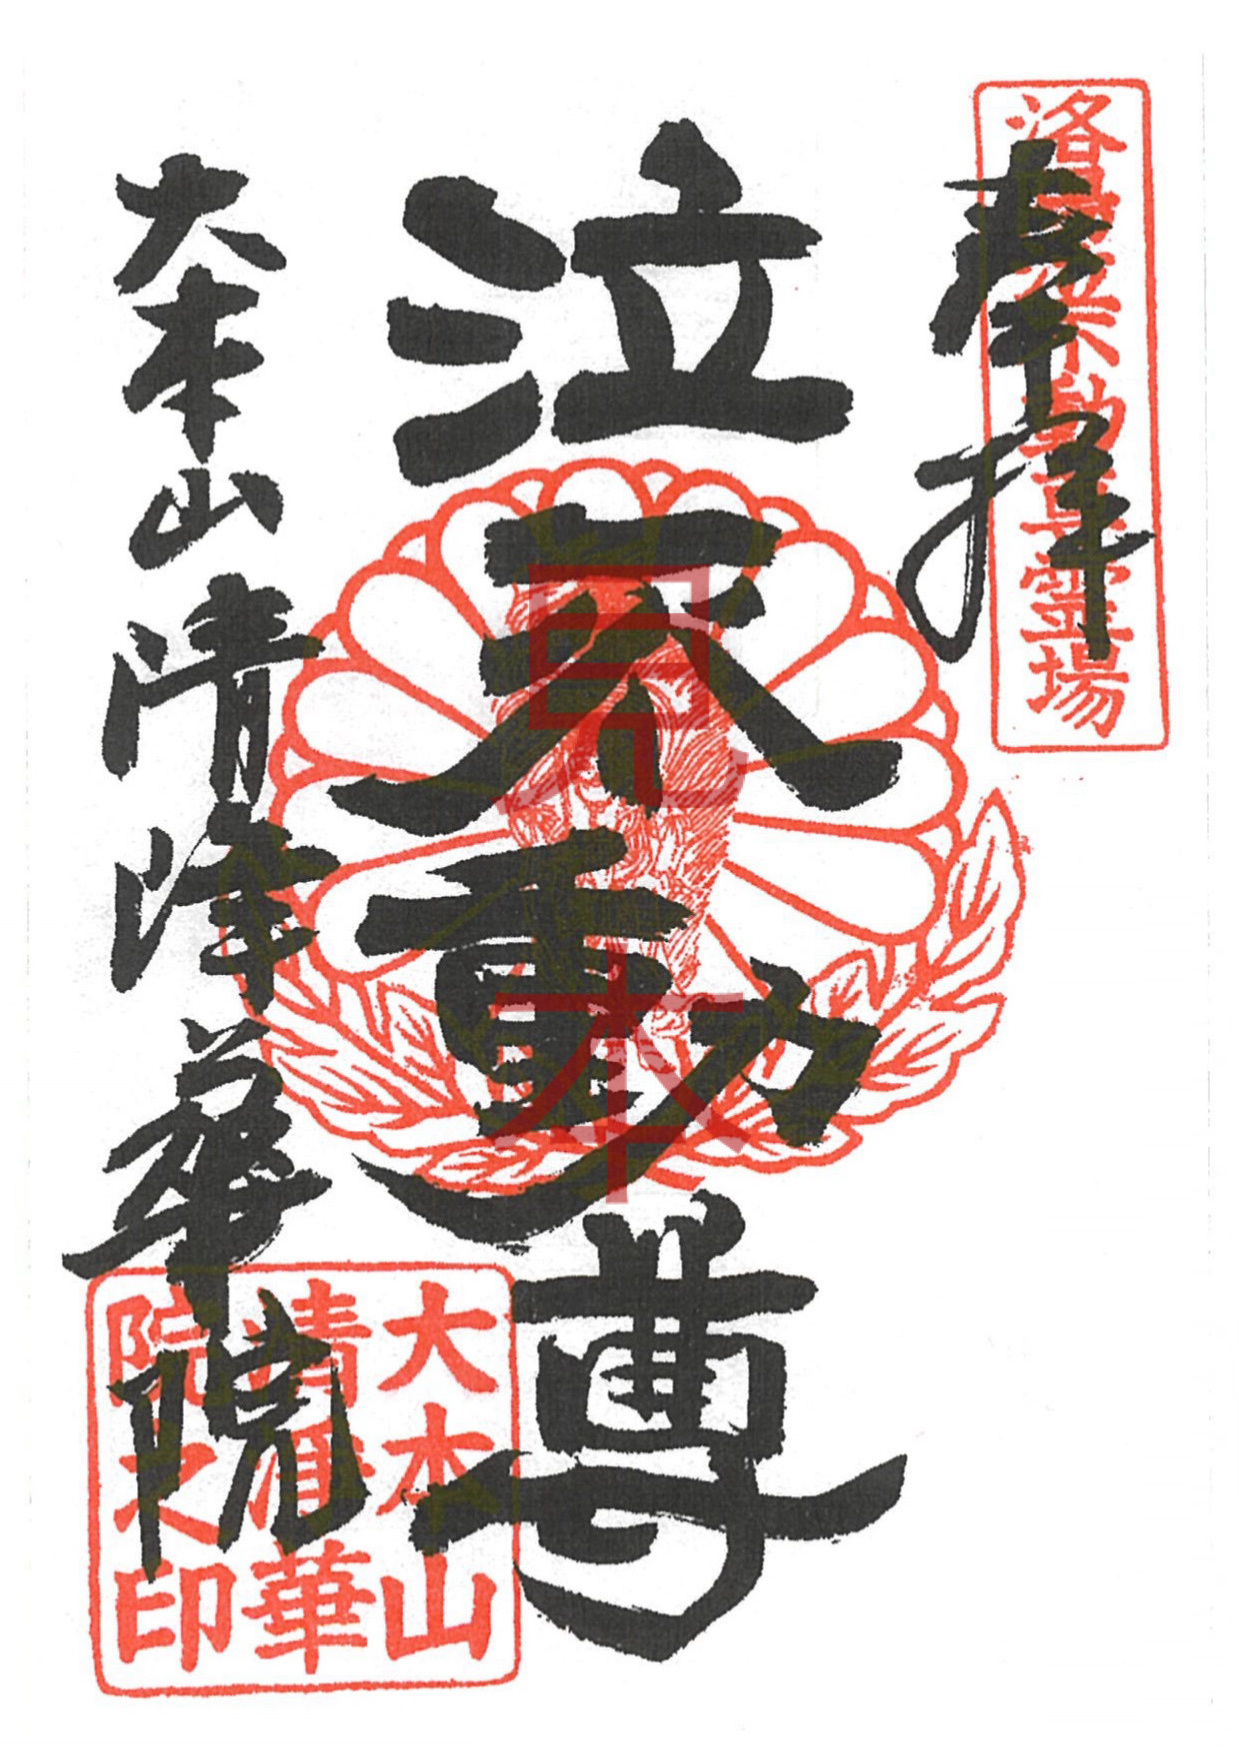 洛陽不動尊霊場
奉拝
泣不動尊
見本
大本山清浄華院
大本山
清浄華
院之印